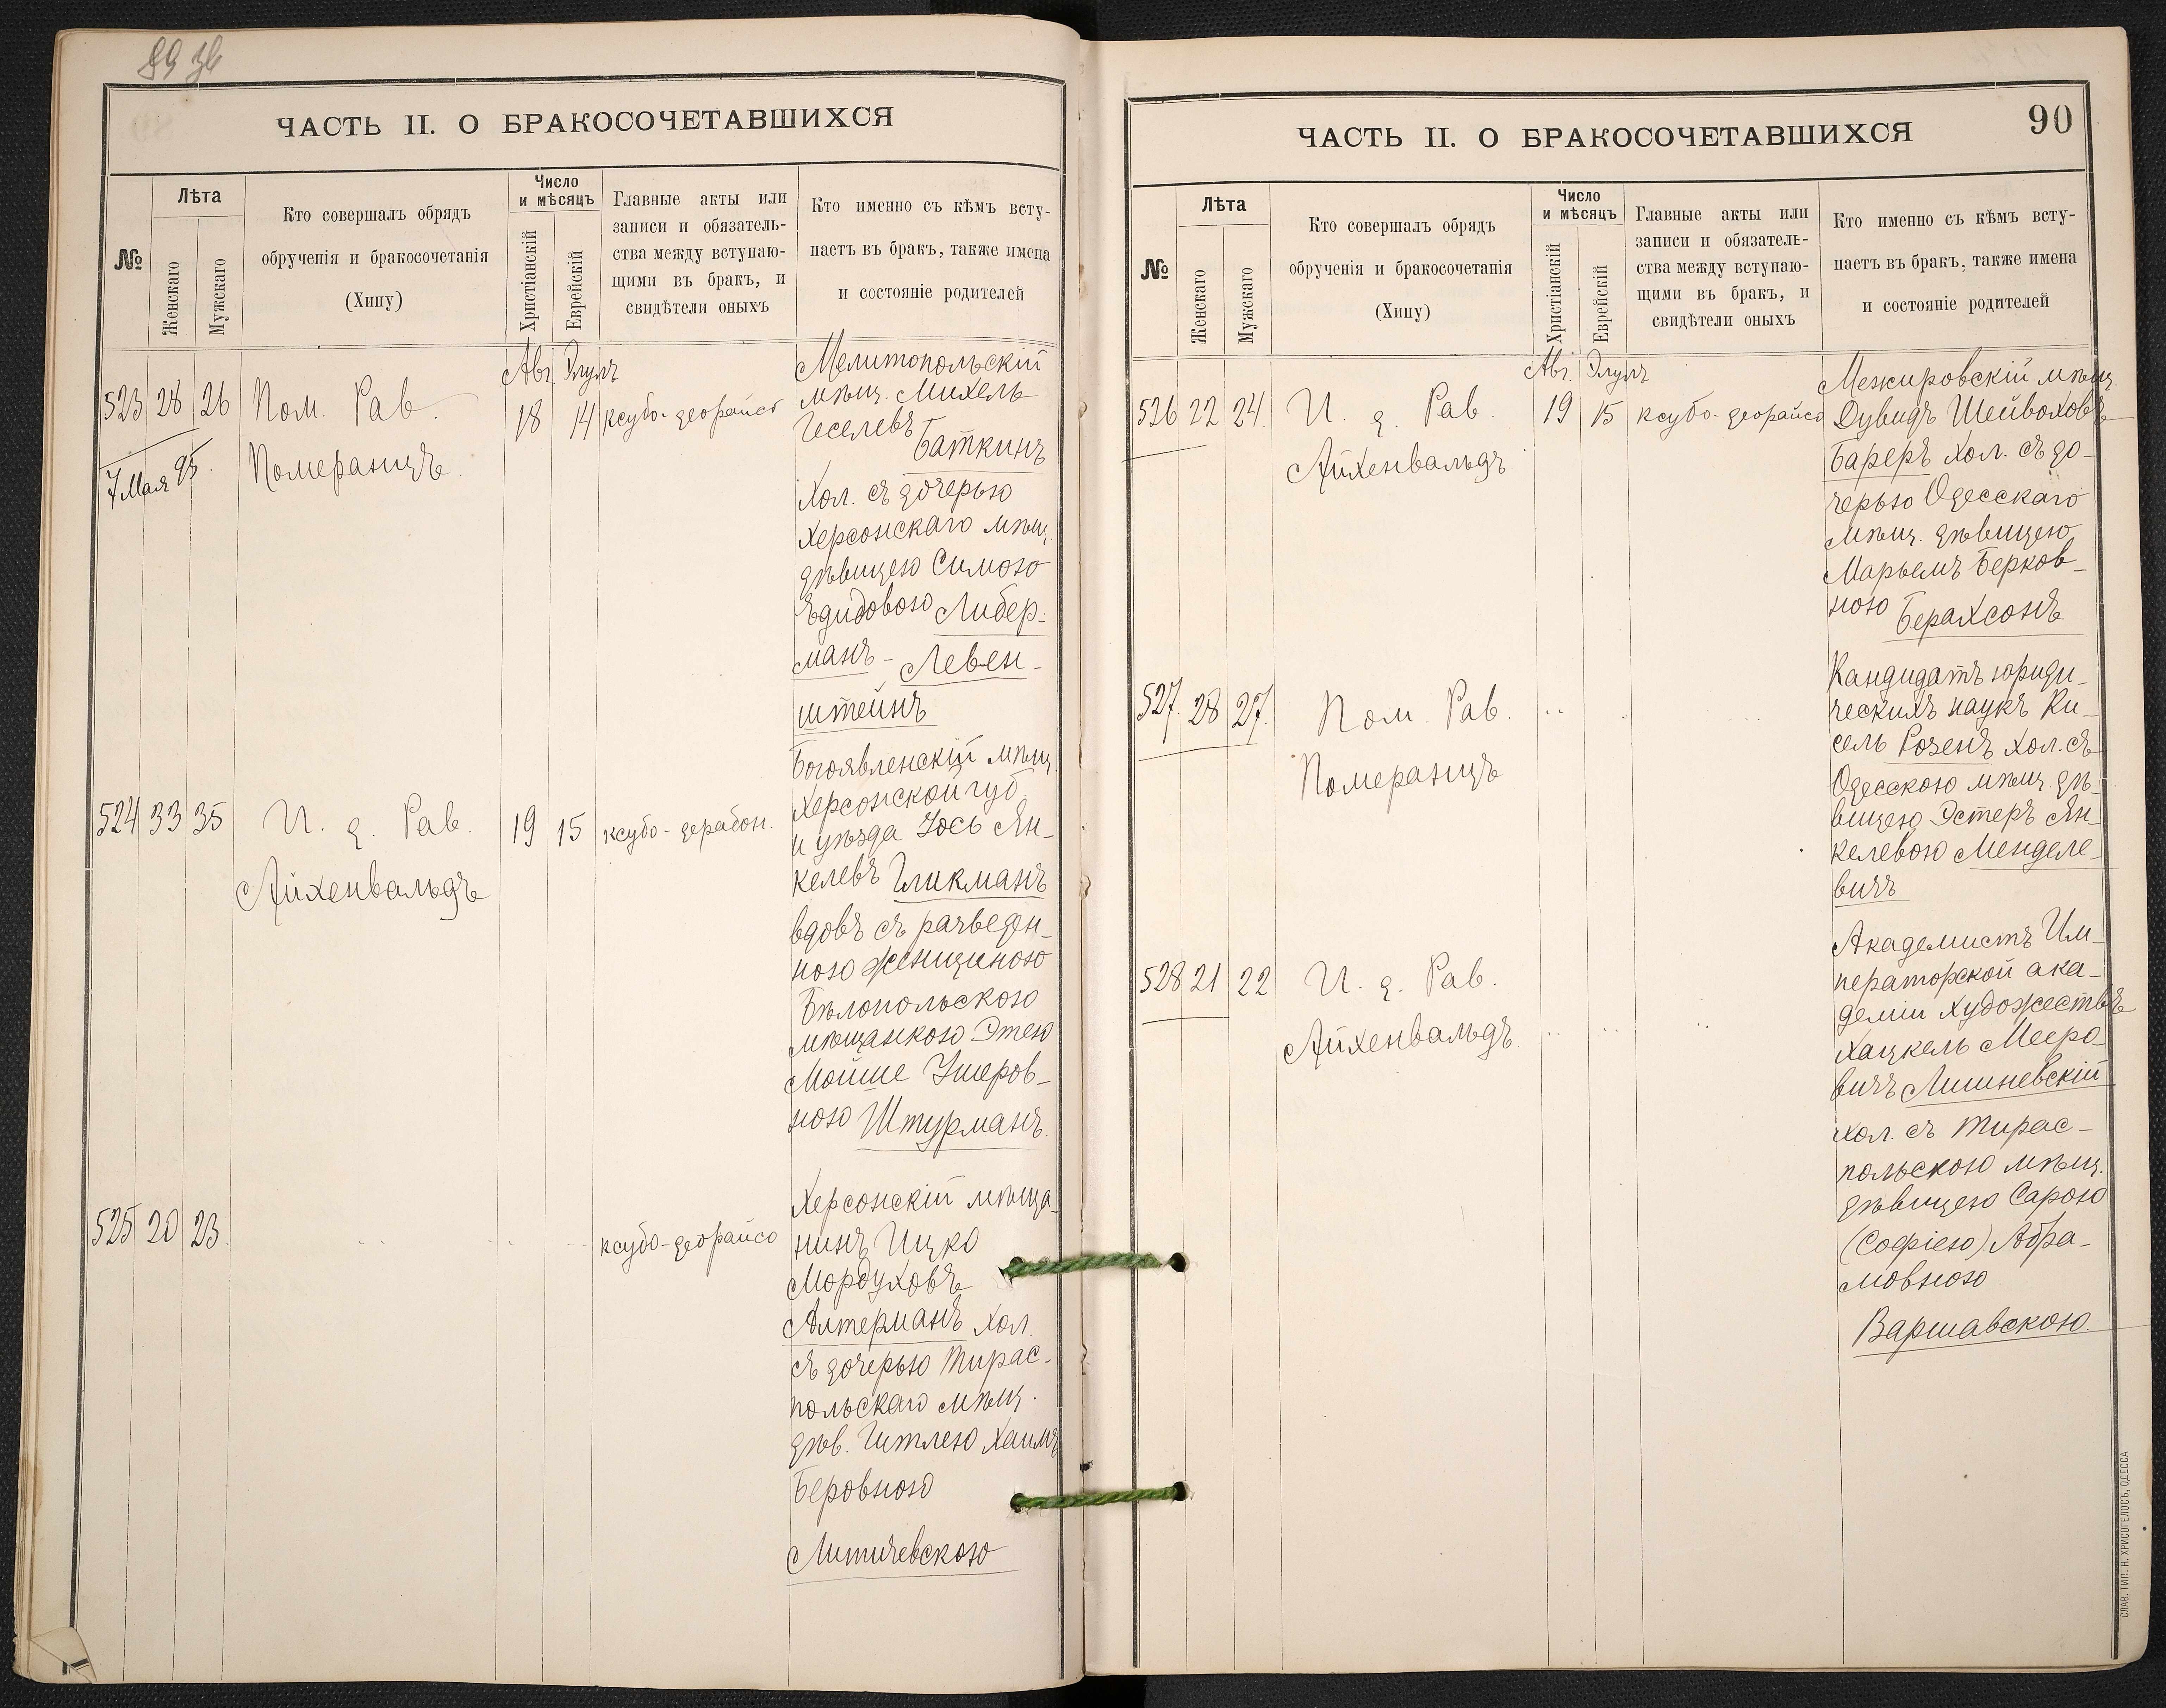 89 зв
ЧАСТЬ II. О БРАКОСОЧЕТАВШИХСЯ
№
Лѣта
Женскаго
Мужскаго
Кто совершалъ обрядъ
обрученія и бракосочетанія
(Хипу)
Число
и мѣсяцъ
Христіанскій
Еврейскій
Главные акты или
записи и обязатель-
ства между вступаю-
щими въ бракъ, и
свидѣтели оныхъ
Кто именно съ кѣмъ всту-
паетъ въ бракъ, также имена
и состояніе родителей
Авг. Элулъ
523 28 26 Пом. Рав. 18 14 ксубо-деорайсо
7 Мая 95. Померанцъ
Мелитопольскій
мѣщ. Михель
Геселевъ
Баткинъ
хол. съ дочерью
Херсонскаго мѣщ.
дѣвицею Симою
Едидовою Либер-
манъ - Левен-
штейнъ
524 33 35 И. д. Рав. 19 15 ксубо-дерабон.
Айхенвальдъ
Богоявленскій мѣщ.
Херсонской губ.
и уѣзда Іось Ян-
келевъ Гликманъ
вдовъ съ разведен-
ною женщиною
Бѣлопольскою
мѣщанкою Этею
Мойше Ушеров-
ною Штурманъ.
525 20 23. ксубо-деорайсо
Херсонскій мѣща-
нинъ Ицко
Мордуховъ
Алтерманъ хол.
съ дочерью Тирас-
польскаго мѣщ.
дѣв. Гитлею Хаимъ
Беровною
Литичевскою
90
ЧАСТЬ II. О БРАКОСОЧЕТАВШИХСЯ
№
Лѣта
Женскаго
Мужскаго
Кто совершалъ обрядъ
обрученія и бракосочетанія
(Хипу)
Число
и мѣсяцъ
Христіанскій
Еврейскій
Главные акты или
записи и обязатель-
ства между вступаю-
щими въ бракъ, и
свидѣтели оныхъ
Кто именно съ кѣмъ всту-
паетъ въ бракъ, также имена
и состояніе родителей
Авг. Элулъ
526 22 24. И. д. Рав. 19 15 ксубо-деорайсо
Айхенвальдъ
Межировскій мѣщ.
Дувидъ Шейвоховъ
Бареръ хол. съ до-
черью Одесскаго
мѣщ. дѣвицею
Марьемъ Берков-
ною Берахсонъ
527. 28 27. Пом. Рав.
Померанцъ
Кандидатъ юриди-
ческихъ наукъ Ки-
сель Розенъ хол. съ
Одесскою мѣщ. дѣ-
вицею Эстеръ Ян-
келевою Менделе-
вичъ
528 21 22 И. д. Рав.
Айхенвальдъ.
Академистъ Им-
ператорской ака-
деміи художествъ
Хацкель Мееро-
вичъ Лишневскій
хол. съ Тирас-
польскою мѣщ.
дѣвицею Сарою
(Софіею) Абра-
мовною
Варшавскою.
СЛАВ. ТИП. Н. ХРИСОГЕЛОСЪ, ОДЕССА